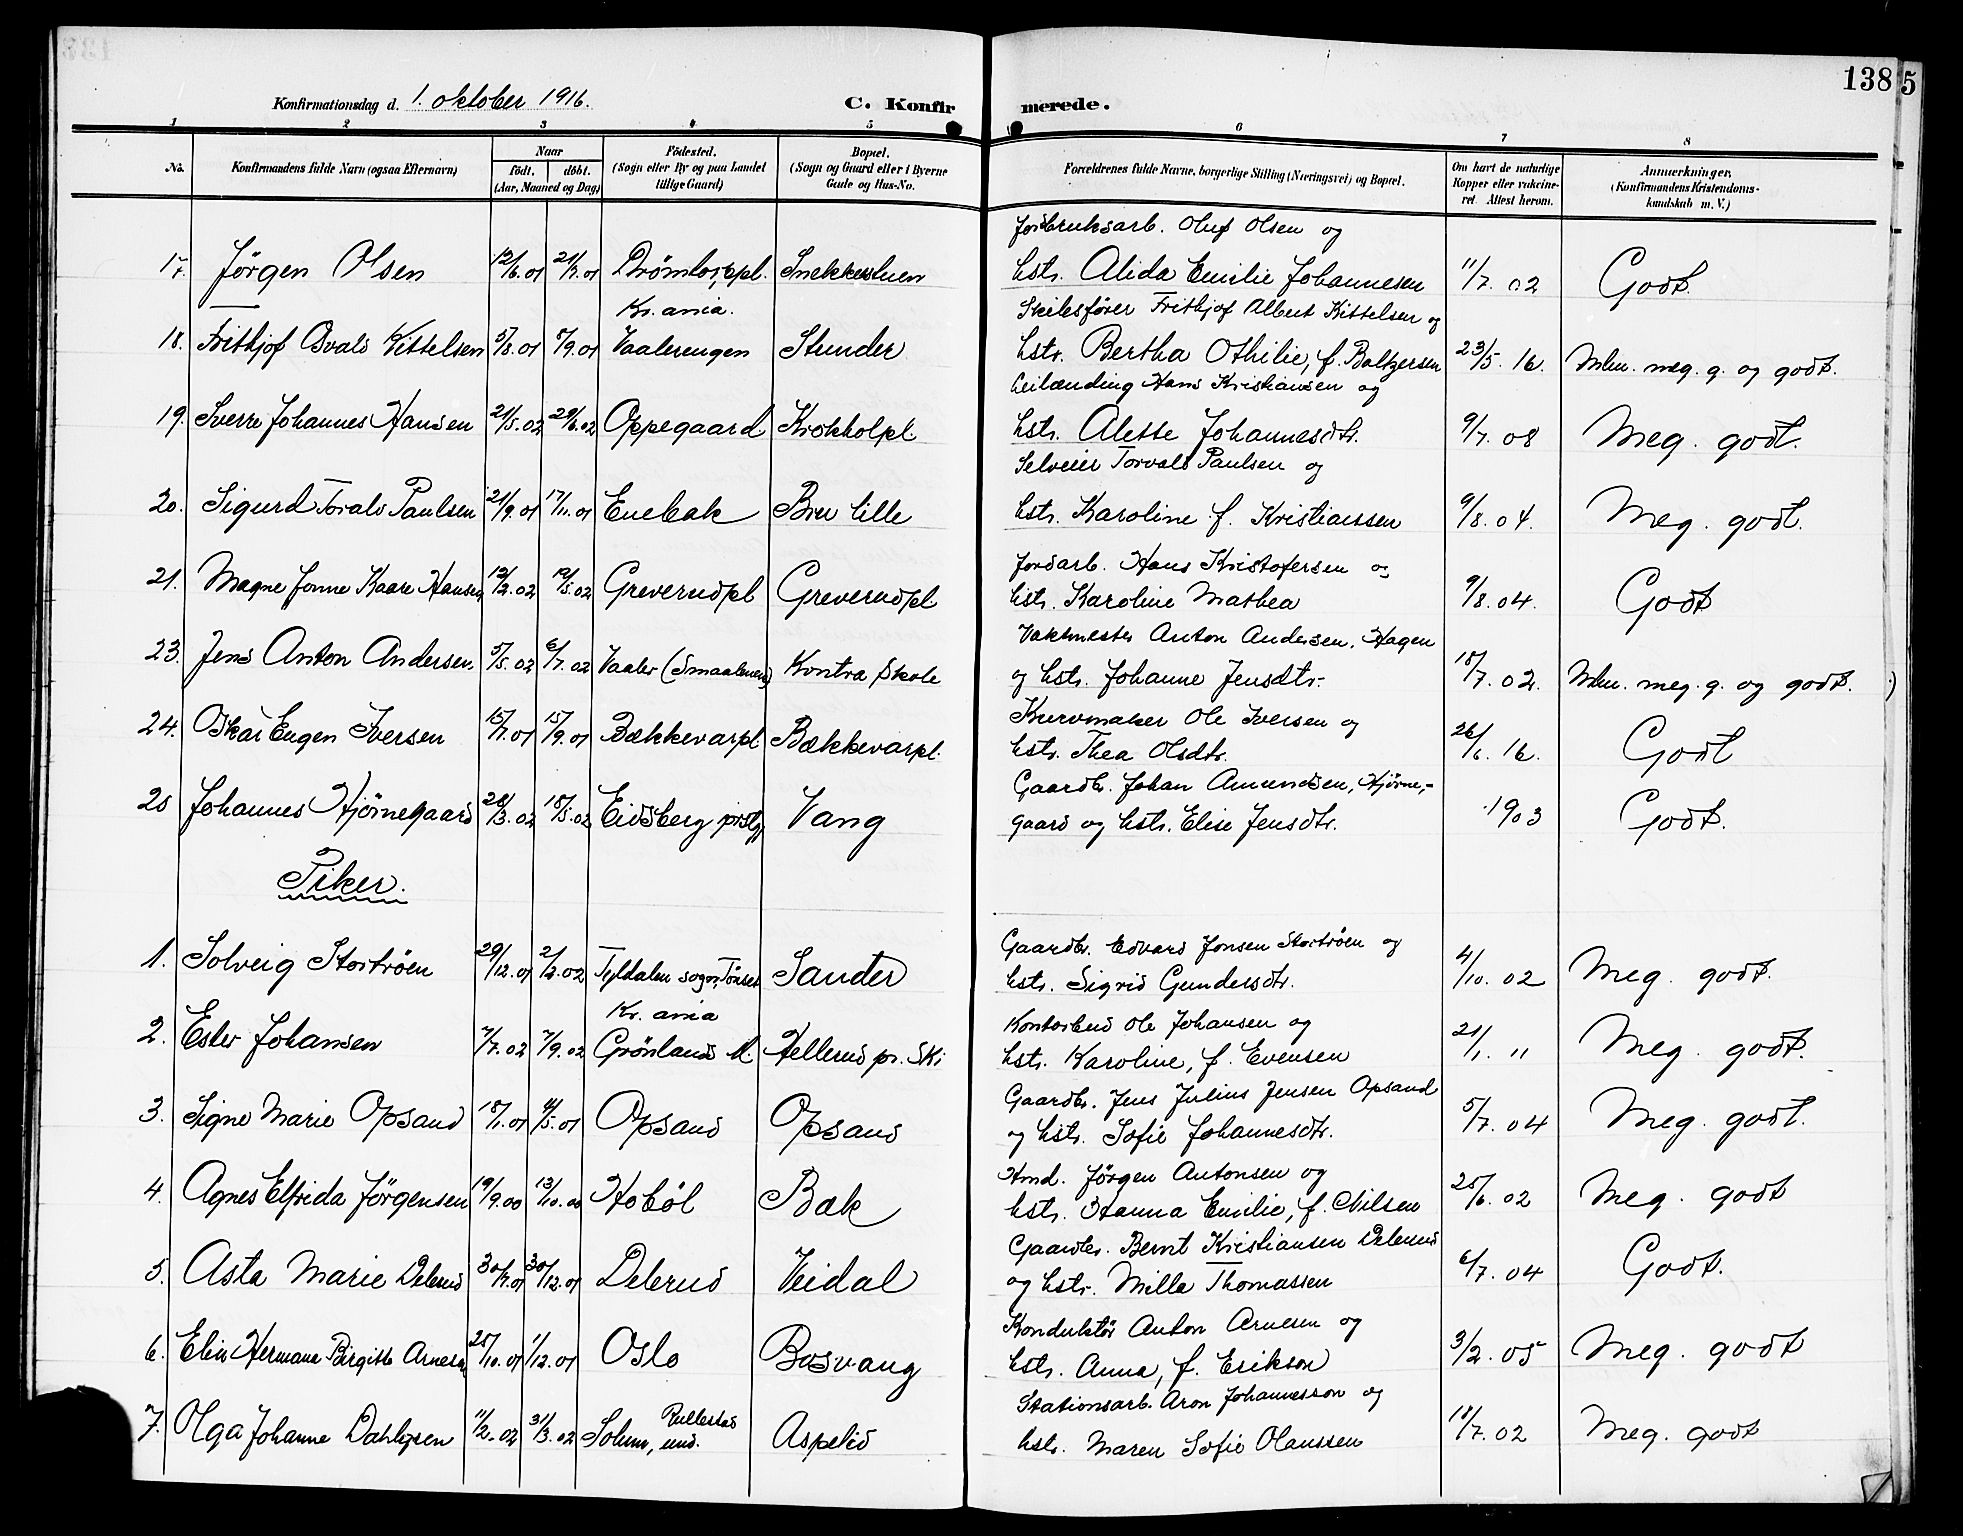 138
5
Konfirmationsdag d. 1. oktober 1916.
C. Konfirmerede.
1 2 3 4 5 6 7 8
No.
Konfirmandens fulde Navn (ogsaa Efternavn)
Naar
födt. döbt.
(Aar, Maaned og Dag)
Födested.
(Sogn eller By og paa Landet
tillige Gaard)
Bopæl.
(Sogn og Gaard eller i Byerne
Gade og Hus-No.
Forældrenes fulde Navne, borgerlige Stilling (Næringsvei) og Bopæl.
Om havt de naturlige
Kopper eller vakcine-
ret. Attest herom.
Anmærkninger.
(Konfirmandens Kristendoms-
kundskab m. V.)
Jordbruksarb. Oluf Olsen og
17. Jörgen Olsen 12/6.01 21/7.01 Drömtorppl. Snekkerstuen hstr. Alida Emilie Johannesen 11/7. 02 Godt.
Kr.ania. Skibsfører Frithjof Albert Kittelsen og
18. Frithjof Osvald Kittelsen 5/8.01 5/9.01 Vaalerengen Stunder hstr. Bertha Othilie, f. Boltzersen 23/5. 16. Mln. meg. g. og godt.
Leilænding Hans Kristiansen og
19. Sverre Johannes Hansen 21/5.02 29/6.02 Oppegaard Krokholpl hstr. Alette Johannesdtr. 9/7. 08 Meg. godt.
Selveier Torvald Paulsen og
20. Sigurd Torvald Paulsen 21/9.01 17/11.01 Enebak Bru lille hstr. Karoline f. Kristianssen 9/8. 04. Meg. godt.
Jordarb. Hans Kristofersen og
21. Magne Jonne Kaare Hansen 12/2.02 19/5.02 Greverudpl Greverudpl hstr. Karoline Mathea 9/8. 04. Godt
Vaktmester Anton Andersen, Hagen
23. Jens Anton Andersen 5/5.02 6/7.02 Vaaler (Smaalenene) Kontra skole og hstr. Johanne Jensdtr. 18/7. 02. Mln. meg. g. og godt.
Kurvmaker Ole Iversen og
24. Oskar Eugen Iversen 15/7.01 15/9.01 Bækkevarpl Bækkevarpl. hstr. Thea Olsdtr. 26/6. 16. Godt
Gaardbr. Johan Amundsen, Hjørne-
25 Johannes Hjörnegaard 28/3.02 18/5.02 Eidsberg prstgj Vang gaard og hstr. Elise Jensdtr. 1903 Godt.
Piker.
Gaardbr. Edvard Jonsen Stortröen og
1. Solveig Stortröen 29/12.01 2/2.02 Tyldalen sogn, Tönset Sander hstr. Sigrid Gundersdtr. 4/10. 02 Meg. godt.
Kr. ania Kontorbud Ole Johansen og
2. Ester Johansen 7/7.02 7/9.02 Grönlands M. Hellerud pr. Ski hstr. Karoline, f. Evensen 21/1. 11 Meg. godt.
Gaardbr. Jens Julius Jensen Opsand
3. Signe Marie Opsand 18/1.01 4/5.01 Opsand Opsand og hstr. Sofie Johannesdtr. 5/7. 04 Meg. godt.
Hmd. Jørgen Antonsen og
4. Agnes Elfrida Jörgensen 19/9.00 13/10.00 Hoböl Bæk hstr. Hanna Emilie, f. Nilsen 25/6. 02 Meg. godt
Gaardbr. Bernt Kristiansen Delerud
5. Asta Marie Delerud 30/9.01 30/12.01 Delerud Veidal og hstr. Milla Thomassen 6/7. 04 Godt.
Konduktör Anton Arnesen og
6. Elin Hermana Birgitte Arnesen 25/10.01 1/12.01 Oslo Bosvang hstr. Anna, f. Erikson 3/2. 05 Meg. godt
Rullestad Stationsarb. Aron Johannesson og
7. Olga Johanne Dahlgren 11/2.02 31/3.02 Solum, und. Aspelid hstr. Maren Sofie Olanssen 18/7. 02 Meg. godt